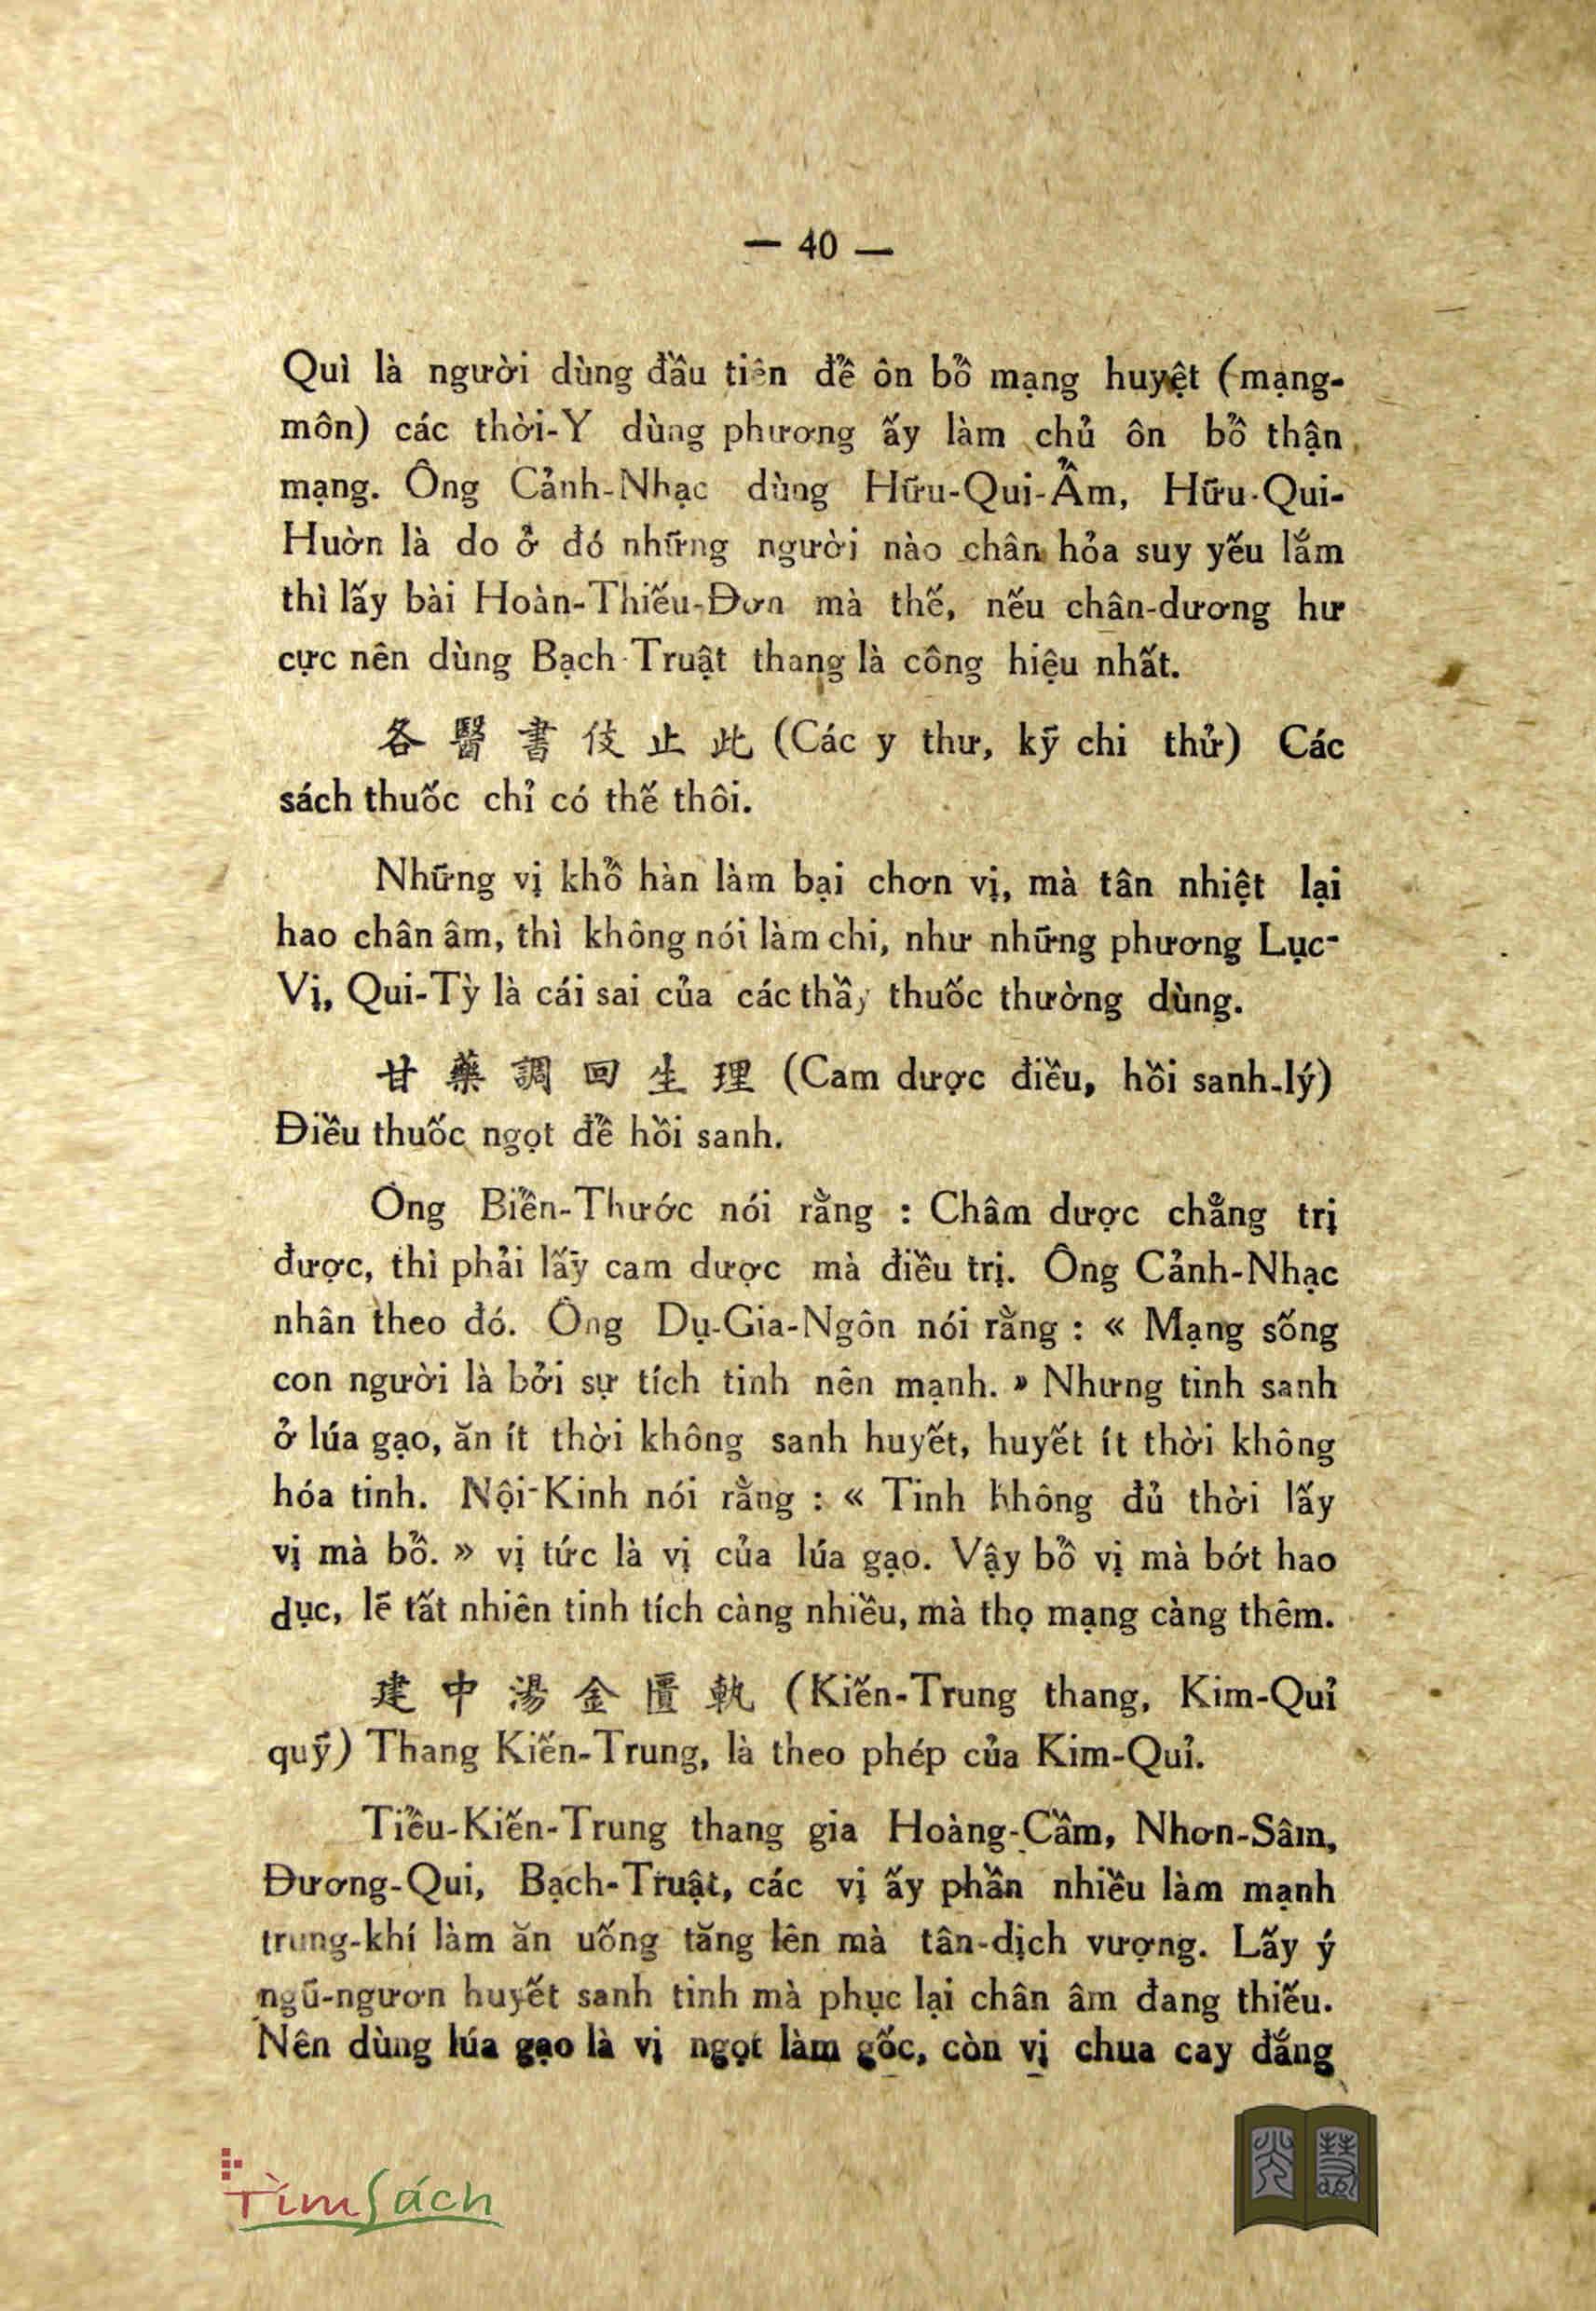 — 40 —
Quì là người dùng đầu tiên để ôn bổ mạng huyệt (mạng-
môn) các thời-Y dùng phương ấy làm chủ ôn bổ thận
mạng. Ông Cảnh-Nhạc dùng Hữu-Qui-Ẩm, Hữu-Qui-
Huờn là do ở đó những người nào chân hỏa suy yếu lắm
thì lấy bài Hoàn-Thiếu-Đơn mà thế, nếu chân-dương hư
cực nên dùng Bạch-Truật thang là công hiệu nhất.
各醫書伎止此 (Các y thư, kỹ chi thử) Các
sách thuốc chỉ có thế thôi.
Những vị khổ hàn làm bại chơn vị, mà tân nhiệt lại
hao chân âm, thì không nói làm chi, như những phương Lục-
Vị, Qui-Tỳ là cái sai của các thầy thuốc thường dùng.
甘藥調回生理 (Cam dược điều, hồi sanh-lý)
Điều thuốc ngọt để hồi sanh.
Ông Biển-Thước nói rằng : Châm dược chẳng trị
được, thì phải lấy cam dược mà điều trị. Ông Cảnh-Nhạc
nhân theo đó. Ông Dụ-Gia-Ngôn nói rằng : « Mạng sống
con người là bởi sự tích tinh nên mạnh. » Nhưng tinh sanh
ở lúa gạo, ăn ít thời không sanh huyết, huyết ít thời không
hóa tinh. Nội-Kinh nói rằng : « Tinh không đủ thời lấy
vị mà bổ. » vị tức là vị của lúa gạo. Vậy bổ vị mà bớt hao
dục, lẽ tất nhiên tinh tích càng nhiều, mà thọ mạng càng thêm.
建中湯金匱執 (Kiến-Trung thang, Kim-Quỉ
quỹ) Thang Kiến-Trung, là theo phép của Kim-Quỉ.
Tiểu-Kiến-Trung thang gia Hoàng-Cầm, Nhơn-Sâm,
Đương-Qui, Bạch-Truật, các vị ấy phần nhiều làm mạnh
trung-khí làm ăn uống tăng lên mà tân-dịch vượng. Lấy ý
ngũ-ngươn huyết sanh tinh mà phục lại chân âm đang thiếu.
Nên dùng lúa gạo là vị ngọt làm gốc, còn vị chua cay đắng
TìmSách